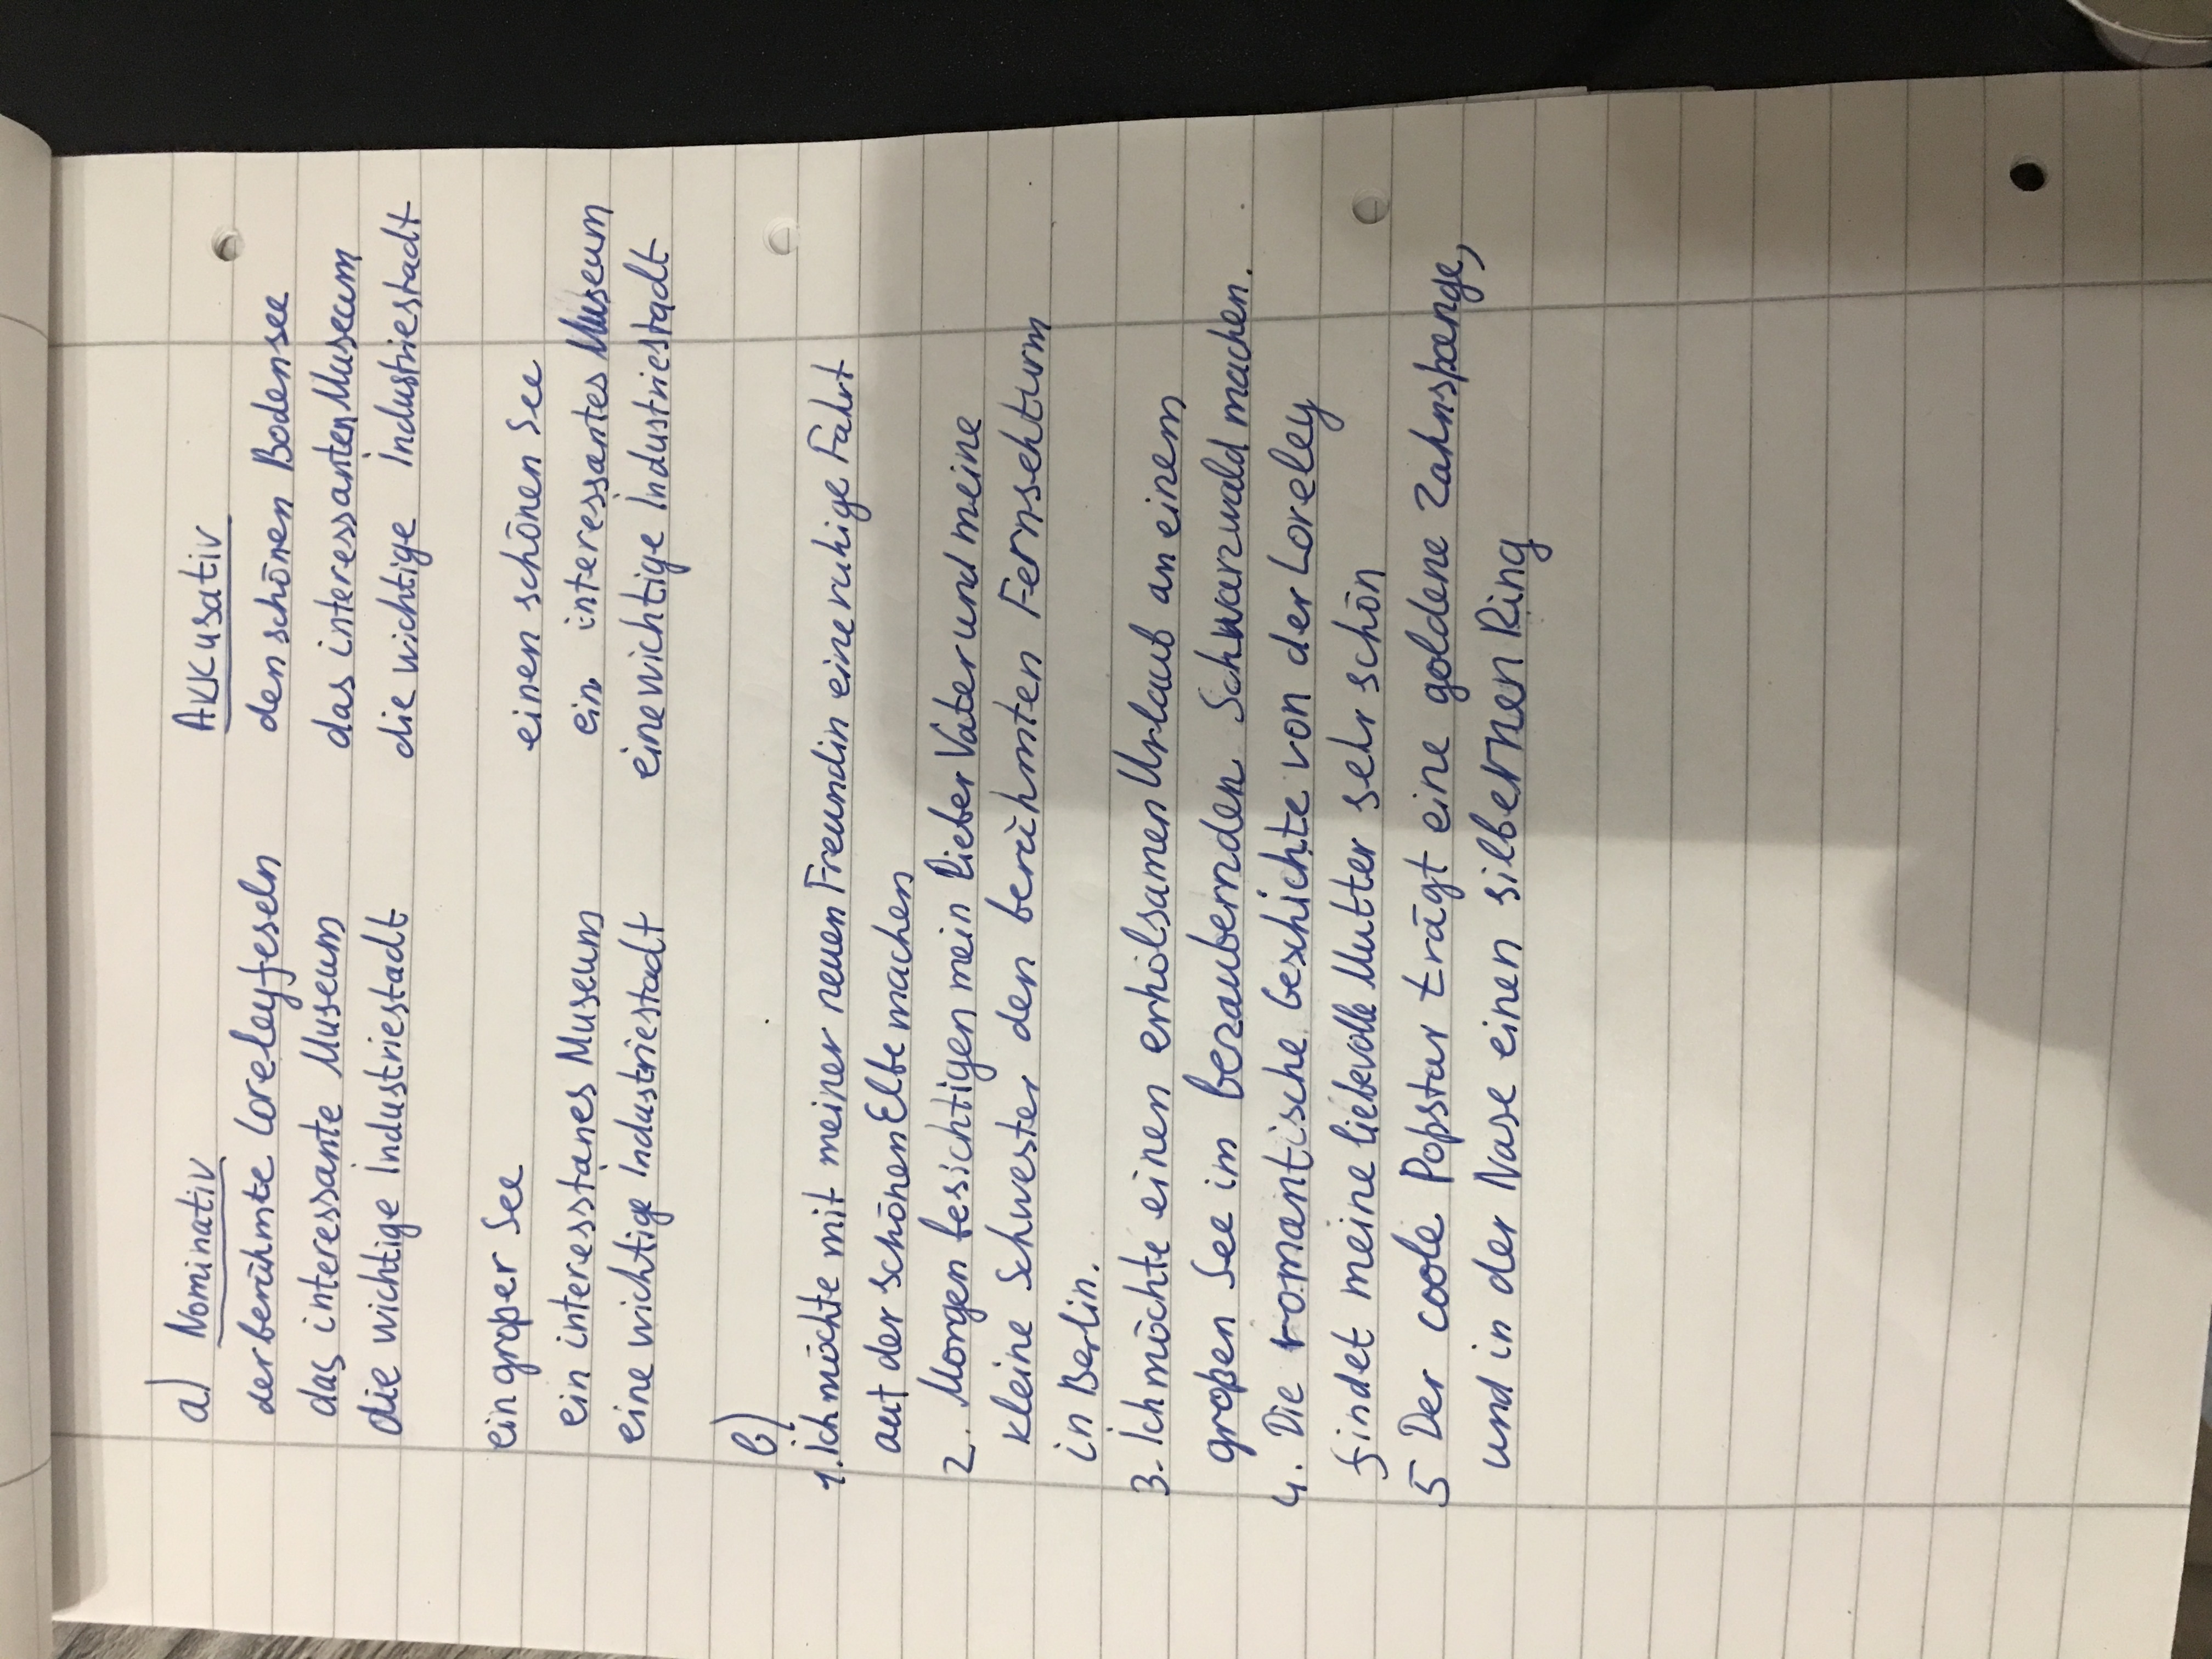 a) Nominativ Akkusativ
der berühmte Loreleyfeseln den schönen Bodensee
das interessante Museum das interessanten Museum
die wichtige Industriestadt die wichtige Industriestadt
ein großer See einen schönen See
ein interesstanes Museum ein interessantes Museum
eine wichtige Industriestadt eine wichtige Industriestadt
b)
1. Ich möchte mit meiner neuen Freundin eine ruhige Fahrt
auf der schönen Elbe machen
2. Morgen besichtigen mein lieber Vater und meine
kleine Schwester den berühmten Fernsehturm
in Berlin.
3. Ich möchte einen erholsamen Urlaub an einem
großen See im bezaubernden Schwarzwald machen.
4. Die romantische Geschichte von der Loreley
findet meine liebevolle Mutter sehr schön
5 Der coole Popstar trägt eine goldene Zahnspange,
und in der Nase einen silbernen Ring